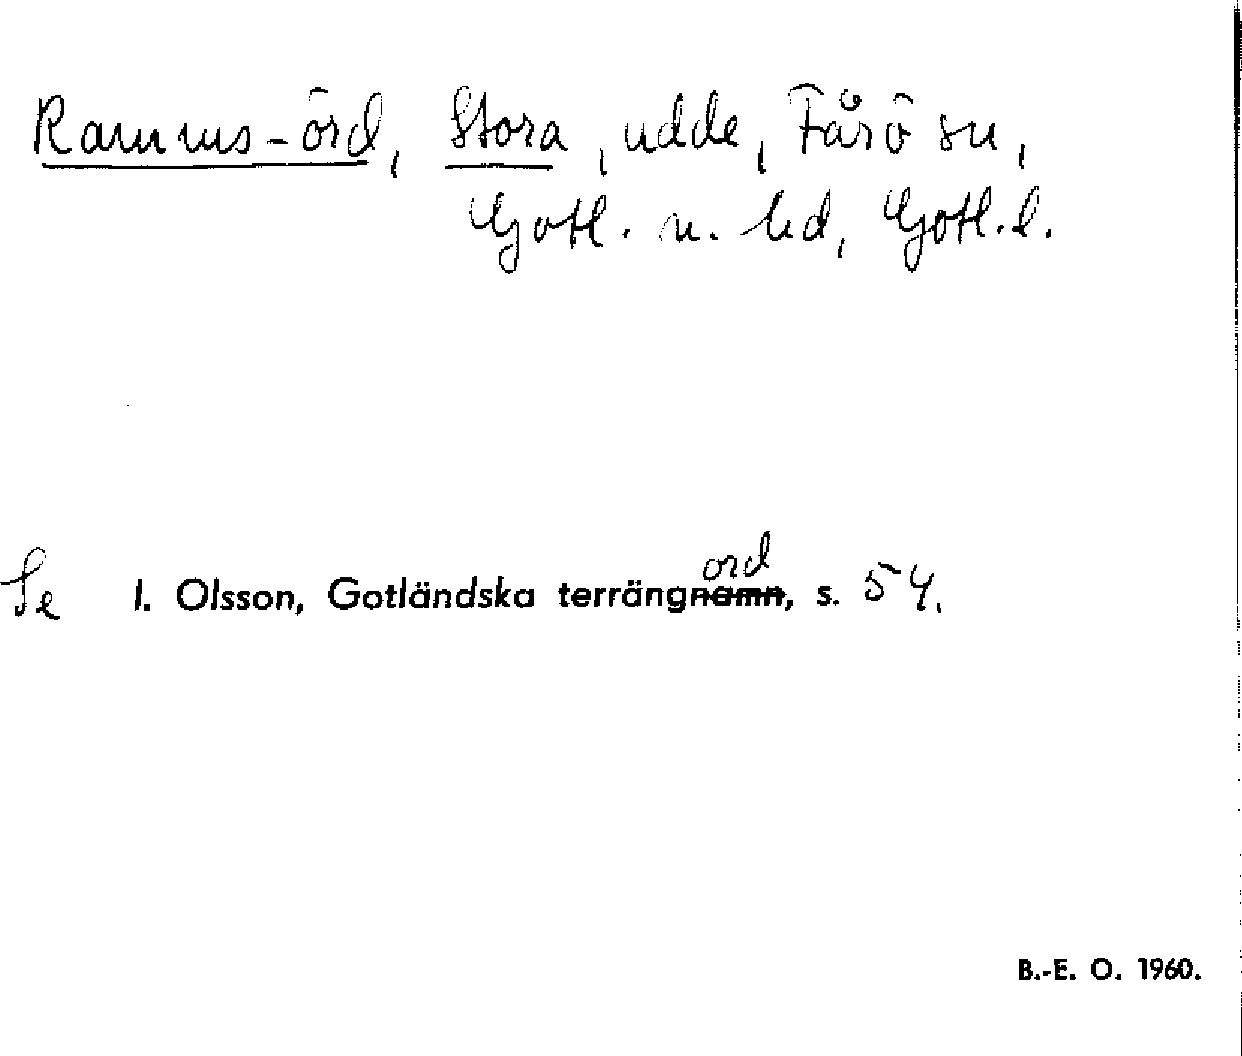 Ramms-örd, Stora, udde, Fårö sn,
Gotl. n. hd, Gotl. l.
Se I. Olsson, Gotländska terrängnamn, s. 54.
ord
B.-E. O. 1960.